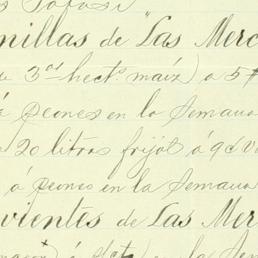 s Sofasi
nillas de "Las Merc
e 3 as hects maíz) a 5 $
á peones en la Semana
20 litros frijol á 9 c v
á peones en la Semana
vientes de Las Mer
la Sem